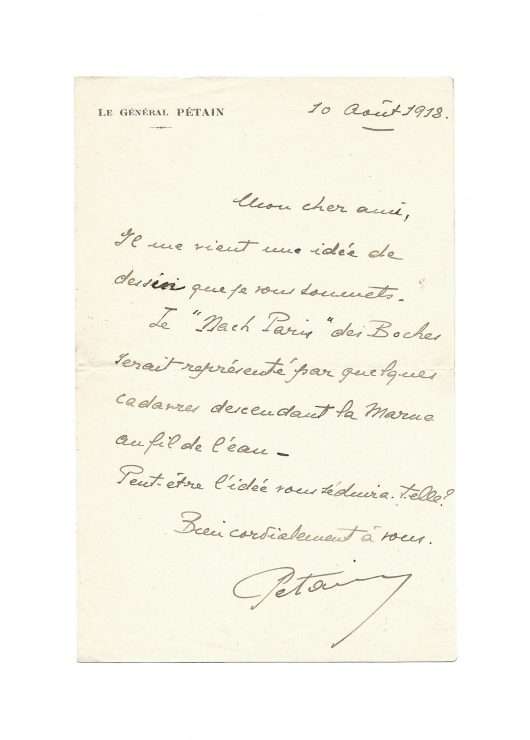 LE GÉNÉRAL PÉTAIN
10 Août 1918.
Mon cher ami,
Il me vient une idée de
dessin que je vous soumets.
Le "Nach Paris" des Boches
serait représenté par quelques
cadavres descendant la Marne
au fil de l'eau –
Peut-être l'idée vous séduira-t-elle?
Bien cordialement à vous.
Pétain